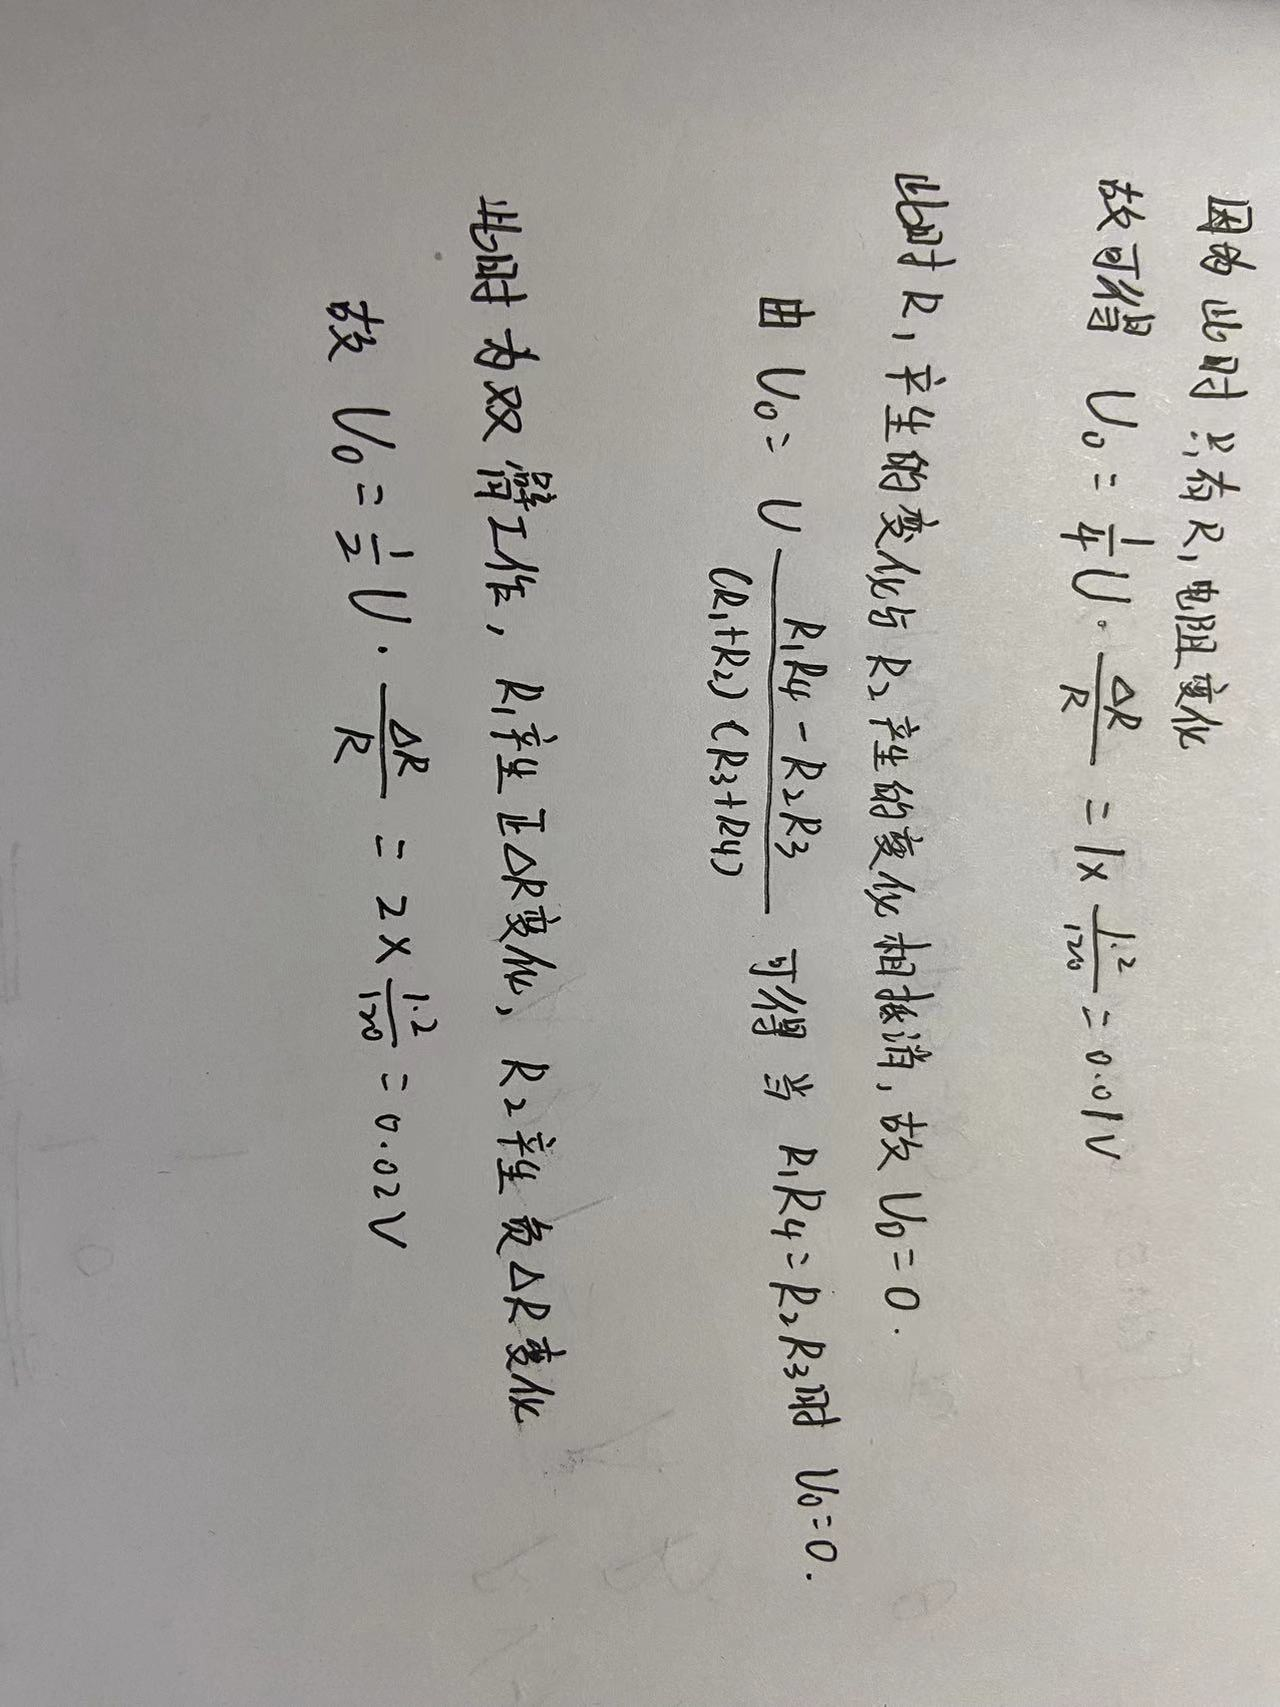 因为此时只有R₁电阻变化
故可得 U₀=1/4U·ΔR/R=1×1.2/120=0.01V
此时R₁产生的变化与R₂产生的变化相抵消,故U₀=0.
由U₀=U (R₁R₄-R₂R₃)/((R₁+R₂)(R₃+R₄)) 可得当 R₁R₄=R₂R₃时 U₀=0.
此时为双臂工作,R₁产生正ΔR变化,R₂产生负ΔR变化
故 U₀=1/2U·ΔR/R=2×1.2/120=0.02V